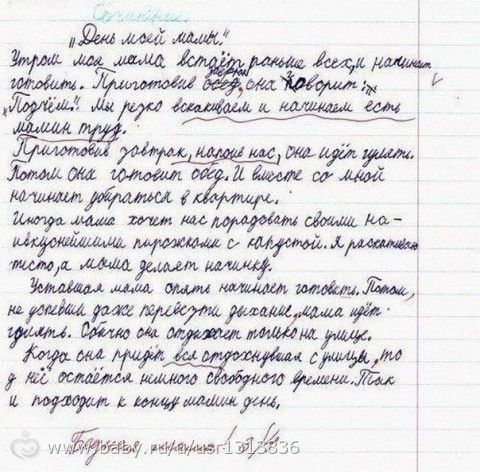 Сочинение.
„День моей мамы."
Утром моя мама встаёт раньше всех, и начинает
готовить. Приготовив обед, она говорит:
„Подъём". Мы резко вскакиваем и начинаем есть
мамин труд.
Приготовив завтрак, напоив нас, она идёт гулять.
Потом она готовит обед. И вместе со мной
начинает убираться в квартире.
Иногда мама хочет нас порадовать своими на-
ивкуснейшими пирожками с капустой. Я раскатываю
тесто, а мама делает начинку.
Уставшая мама опять начинает готовить. Потом,
не успевши даже перевезти дыхание, мама идёт
гулять. Обычно она отдыхает только на улице.
Когда она придёт вся отдохнувшая с улицы, то
у неё остаётся немного свободного времени. Так
и подходит к концу мамин день.
Бедная мамочка!
www.baby.ru/u/usr1313836